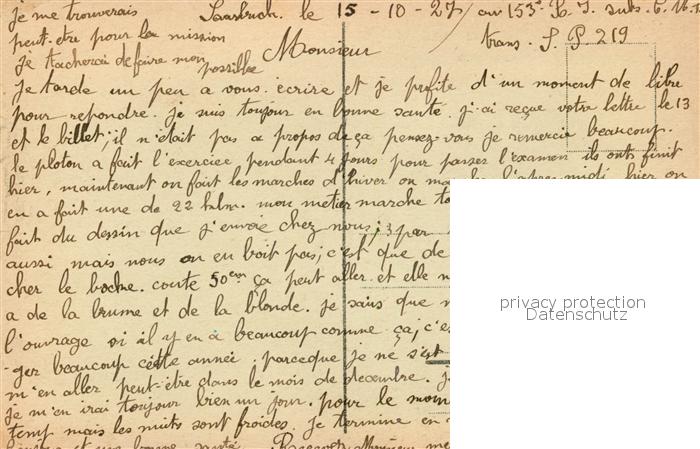 je me trouverais
peut-etre pour la mission
je tacherai de faire mon
possible
Saarbruck. le 15 - 10 - 27 / au 153e
trans. S. P 219
Monsieur
je tarde un peu a vous ecrire et je profite d'un moment de libre
pour repondre. je suis toujour en bonne santé. j'ai reçue votre lettre le 13
et le billet; il n'était pas a propos de ça pensez-vous je remercie beaucoup.
le ploton a fait l'exercice pendant 4 jours pour passer l'examen ils ont finit
hier, maintenant on fait les marches d'hiver on l'apres midi hier on
en a fait une de 22 mon metier marche
fait du dessin que j'envoie chez nous; 3 par
aussi mais nous on en boit pas; c'est que de
cher le boche. coute 50 cm ça peut aller. et elle
a de la brume et de la blonde. je sais que
l'ouvrage si il y en a beaucoup comme ça, c'es
ger beaucoup cette année. parceque je ne s'est
m'en aller peut-être dans le mois de decembre.
je m'en irai toujour bien un jour. pour le mom
temp mais les nuits sont froides. je termine en
bonne santé. Recevez Monsieur me
privacy protection
Datenschutz